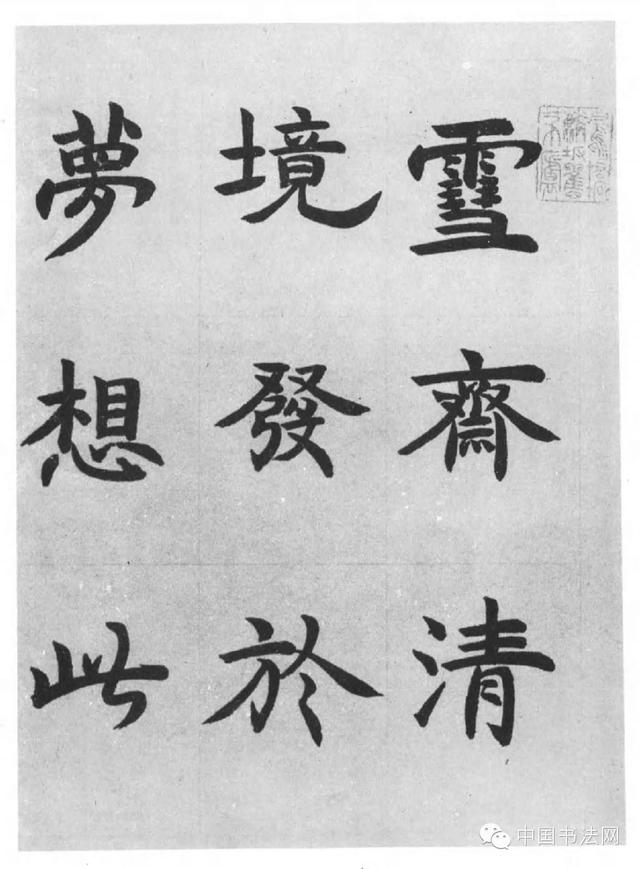 雪齋清
境發於
夢想此
中国书法网